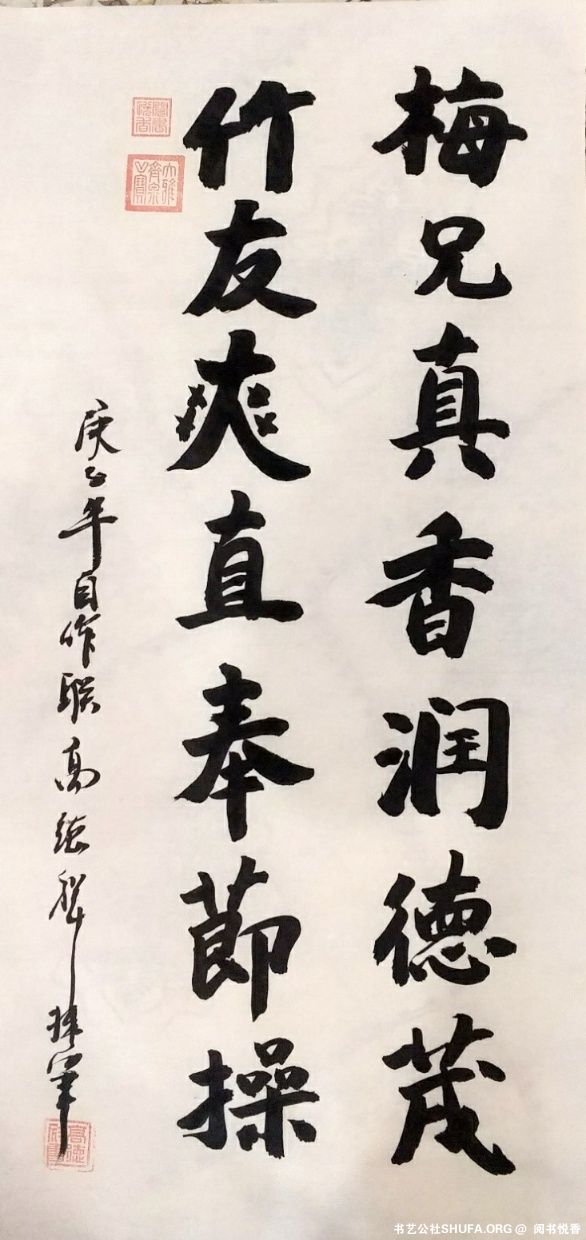 梅兄真香润德茂
竹友爽直奉節操
庚子年自作联高德醉拜笔
书艺公社SHUFA.ORG @ 阅书悦香